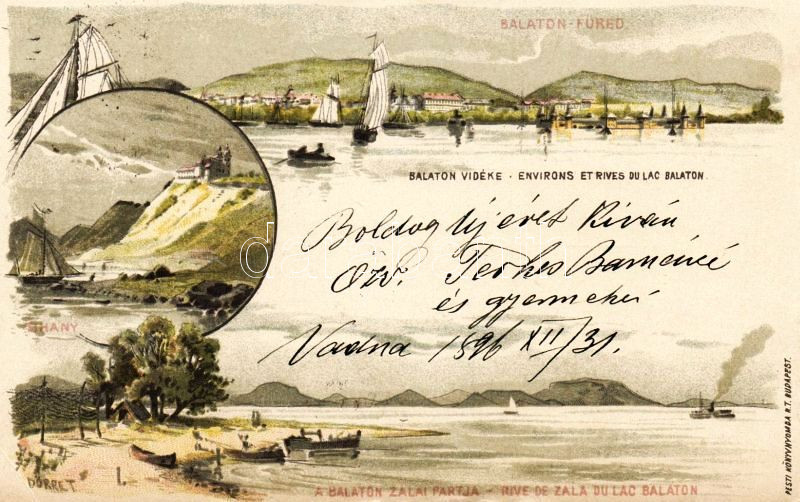 BALATON-FÜRED
BALATON VIDÉKE · ENVIRONS ET RIVES DU LAC BALATON.
Boldog Új évet Kíván
Özv.
és gyermekei
Vadna 1896 XII/31.
TIHANY
DÖRRET
I.
A BALATON ZALAI PARTJA - RIVE DE ZALA DU LAC BALATON
PESTI KÖNYVNYOMDA R.T. BUDAPEST.